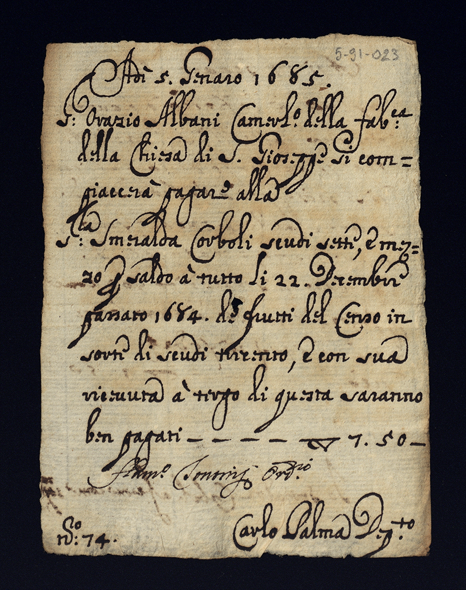 5-91-023
Adi 5. Genaro 1685.
S.r Orazio Albani Camerl.o della fab.ca
della Chiesa di S. Gioseppe si com=
piaccerà pagare alla
S.ra Smeralda Corboli scudi sette, è mez=
zo p saldo à tutto li 22. Decembre
passato 1684. de frutti del Censo in
sorte di scudi trecento, è con sua
ricevuta à tergo di questa saranno
ben pagati — — — — — 7.50 —
Ord.rio
N.o: 74.
Carlo Palma Dep.to